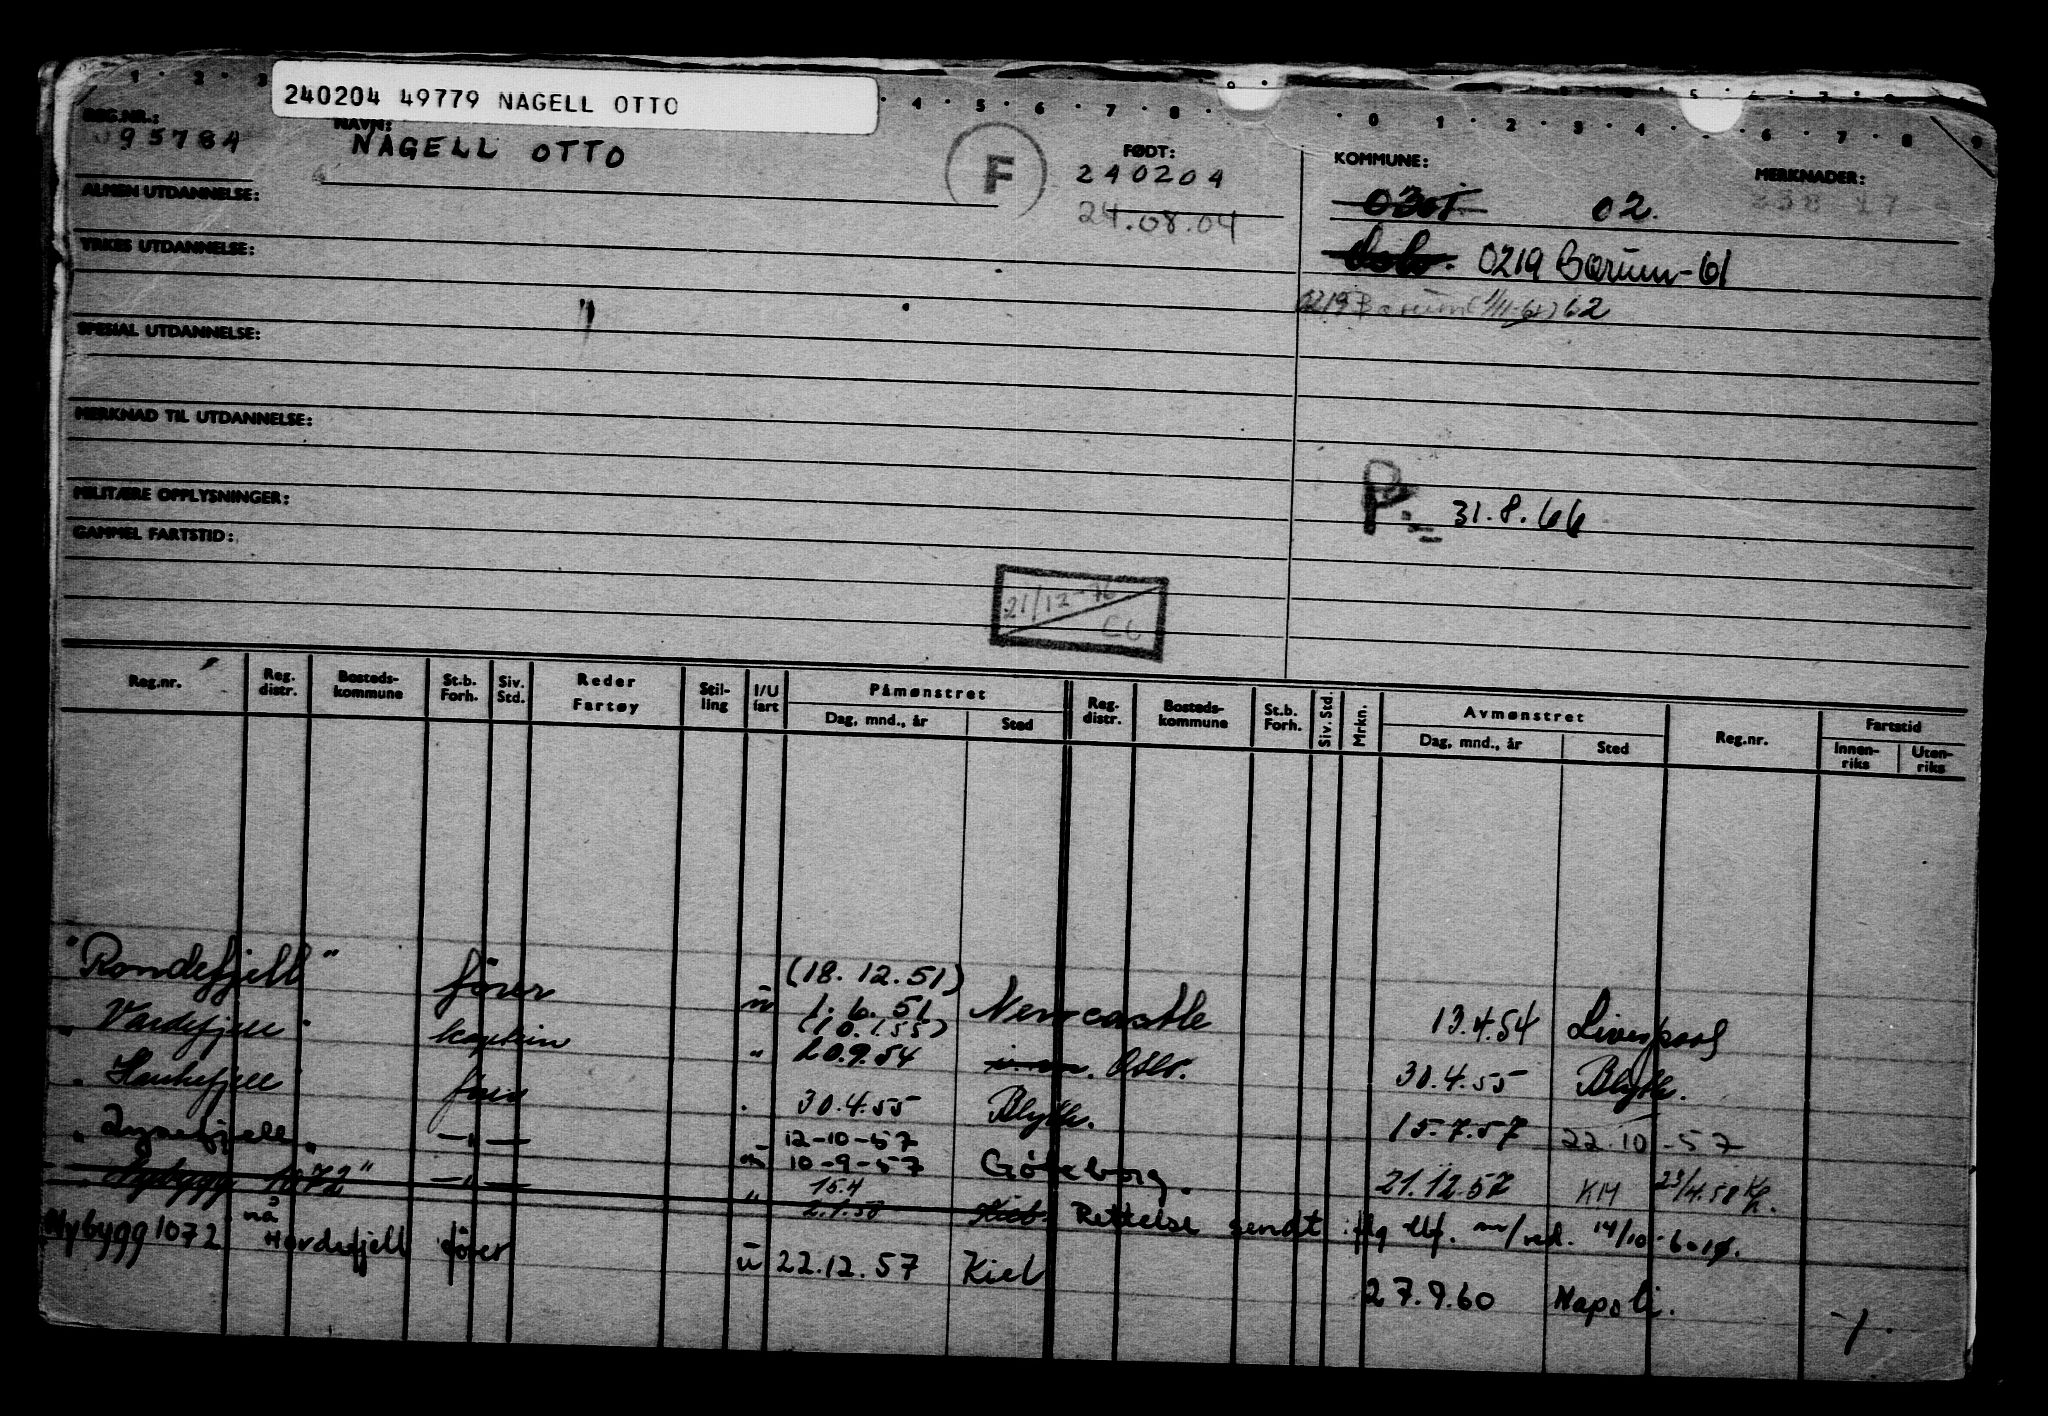 240204 49779 NAGELL OTTO
REG.NR.: NAVN: FØDT: KOMMUNE: MERKNADER:
095784 NAGELL OTTO F 240204 0301 02.
ALMEN UTDANNELSE:
24.08.04
YRKES UTDANNELSE: Oslo. 0219 Bærum-61
0219 Bærum (1/11-61) 62
SPESIAL UTDANNELSE:
MERKNAD TIL UTDANNELSE:
MILITÆRE OPPLYSNINGER: P. 31.8.66
GAMMEL FARTSTID:
21/12-76
Reg.nr. Reg. distr. Bosteds-kommune St.b. Forh. Siv. Std. Reder Fartøy Stil-ling I/U fart Påmønstret Reg. distr. Bosteds-kommune St.b. Forh. Siv. Std. Mrkn. Avmønstret Reg.nr. Fartstid
Dag, mnd., år Sted Dag, mnd., år Sted Innen-riks Uten-riks
(18.12.51)
"Rondefjell" fører u 1.6.51 Newcastle 13.4.54 Liverpool
(10.1.55)
"Vardefjell" kaptein " 20.9.54 Oslo. 30.4.55 Blyth.
"Haukefjell" fører 30.4.55 Blyth. 15.7.57 22.10-57
12-10-57
"Lysefjell" —"— u 10-9-57 Göteborg. 21.12.57 KM 23/4.58
15.4
"Nybygg 1072" —"— " 2.1.58 Kiel Rettelse sendt
Nybygg 1072 nå Hardefjell fører u 22.12.57 Kiel 27.9.60 Napoli.